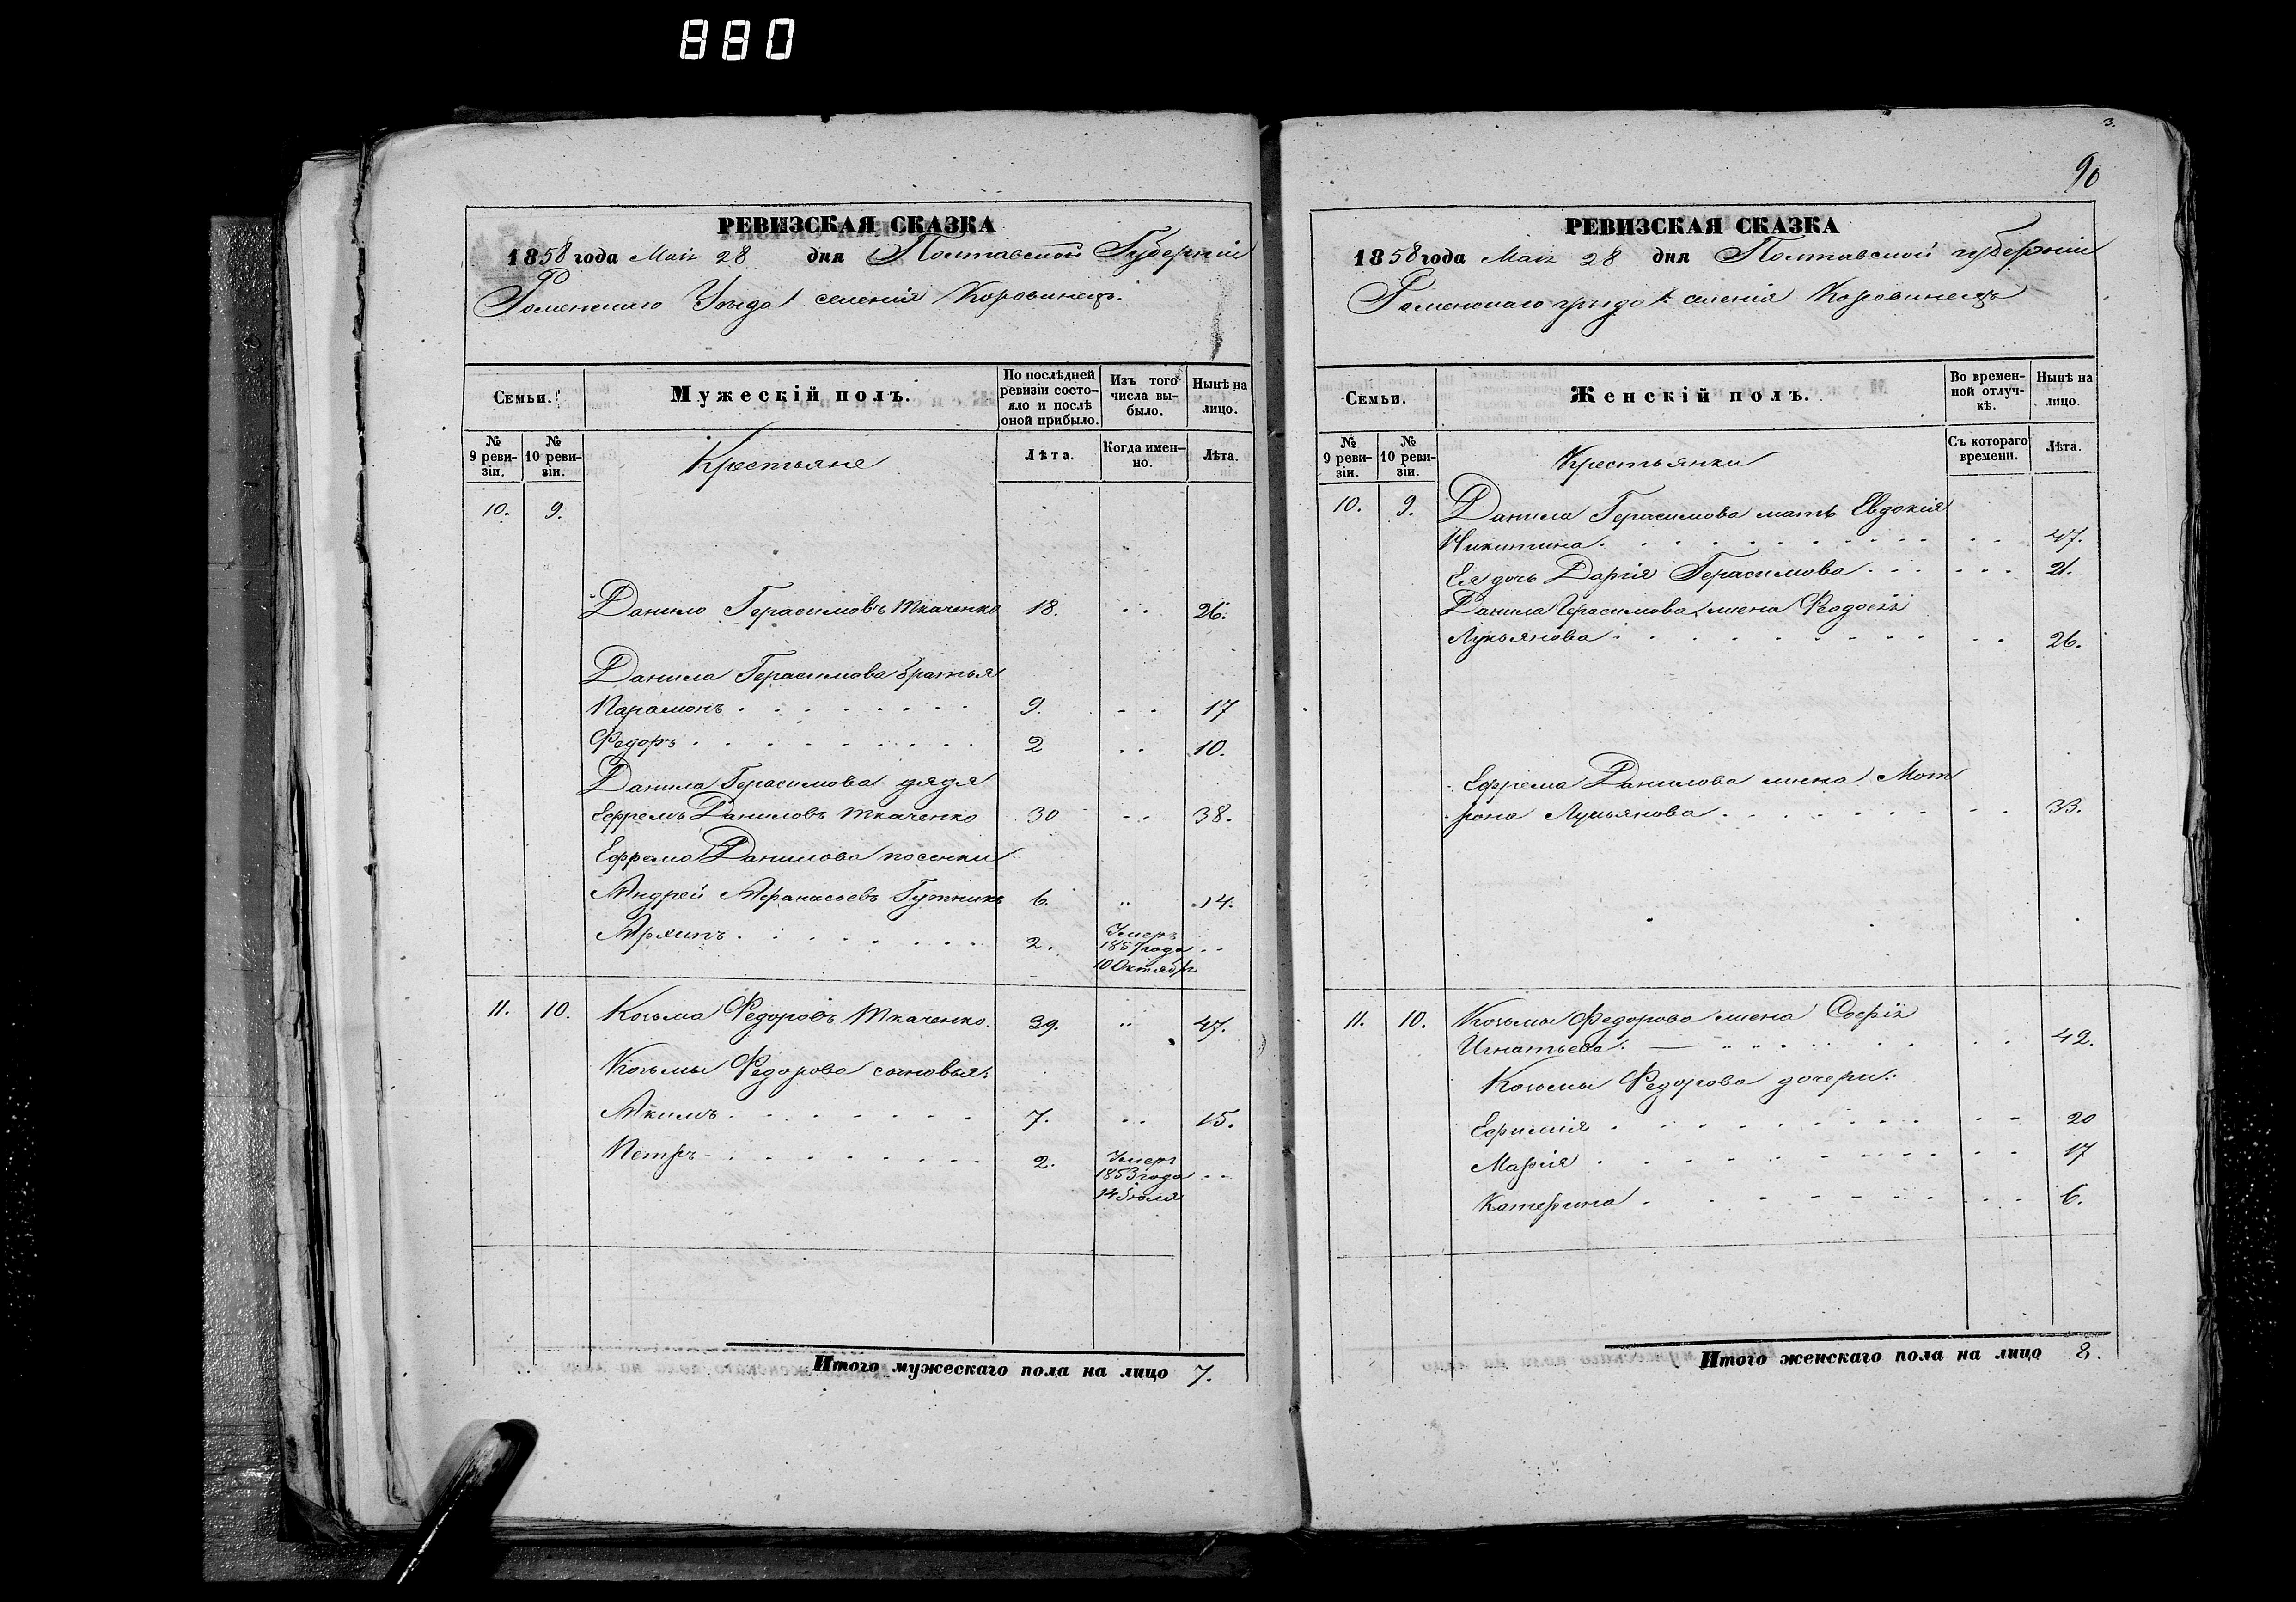 880
РЕВИЗСКАЯ СКАЗКА
1858 года Маія 28 дня Полтавской Губерніи
Роменскаго Уѣзда селенія Коровинецъ.
Семьи.
Мужескій полъ.
По послѣдней ревизіи состояло и послѣ оной прибыло.
Изъ того числа выбыло.
Нынѣ на лицо.
№ 9 ревизіи.
№ 10 ревизіи.
Крестьяне
Лѣта.
Когда именно.
Лѣта.
10. 9.
Данило Герасимовъ Ткаченко 18. .. 26.
Данила Герасимова братья
Парамонъ 9. .. 17
Федоръ 2 .. 10.
Данила Герасимова дядя
Ефремъ Даниловъ Ткаченко 30 .. 38.
Ефрема Данилова посенки
Андрей Афанасьевъ Гутникъ 6. .. 14.
Архипъ 2. Умеръ 1857 года 10 Октября ..
11. 10. Козьма Федоровъ Ткаченко. 39. .. 47.
Козьмы Федорова сыновья:
Акимъ 7. .. 15.
Петръ 2. Умеръ 1853 года 14 Іюля ..
Итого мужескаго пола на лицо 7.
3.
90
РЕВИЗСКАЯ СКАЗКА
1858 года Маія 28 дня Полтавской губерніи
Роменскаго уѣзда селенія Коровинецъ
Семьи.
Женскій полъ.
Во временной отлучкѣ.
Нынѣ на лицо.
№ 9 ревизіи.
№ 10 ревизіи.
Крестьянки
Съ котораго времени.
Лѣта.
10. 9. Данила Герасимова мать Евдокія
Никитина 47.
Ея дочь Дарія Герасимова 21.
Данила Герасимова жена Феодосія
Лукьянова 26.
Ефрема Данилова жена Мот
рона Лукьянова 33.
11. 10. Козьмы Федорова жена Софія
Игнатьева 42.
Козьмы Федорова дочери:
Ефимія 20
Марія 17
Катерина 6.
Итого женскаго пола на лицо 8.